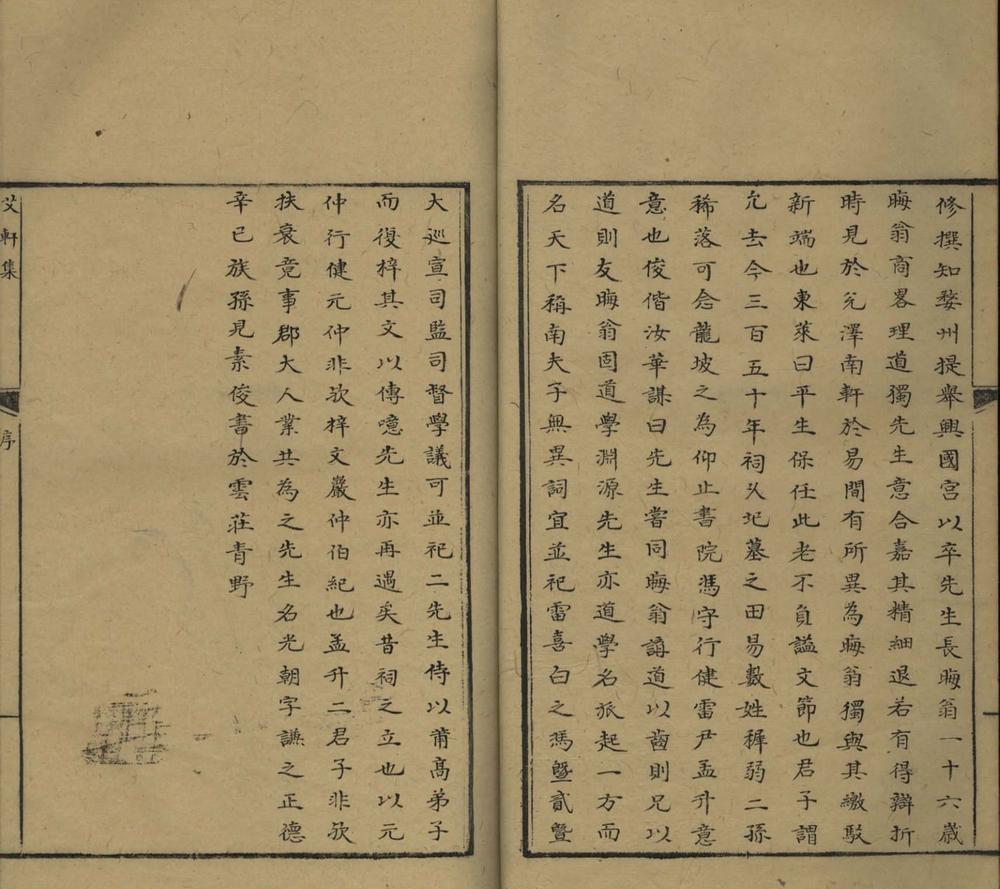 修撰知婺州提舉興國宮以卒先生長晦翁一十六歲
晦翁商畧理道獨先生意合嘉其精細退若有得辯折
時見於兊澤南軒於易間有所異為晦翁獨與其繳駁
新端也東萊曰平生保任此老不負諡文節也君子謂
允去今三百五十年祠久圮墓之田易數姓穉弱二孫
稀落可念龍坡之為仰止書院馮守行健雷尹孟升意
意也俊偕汝華謀曰先生嘗同晦翁講道以齒則兄以
道則友晦翁固道學淵源先生亦道學名派起一方而
名天下稱南夫子無異詞宜並祀雷喜白之馮曁貳曁
大巡宣司監司督學議可並祀二先生侍以莆髙弟子
而復梓其文以傳噫先生亦再遇矣昔祠之立也以元
仲行健元仲非欤梓文嚴仲伯紀也孟升二君子非欤
扶衰竟事郡大人業共為之先生名光朝字謙之正德
辛巳族孫見素俊書於雲莊青野
艾軒集
序